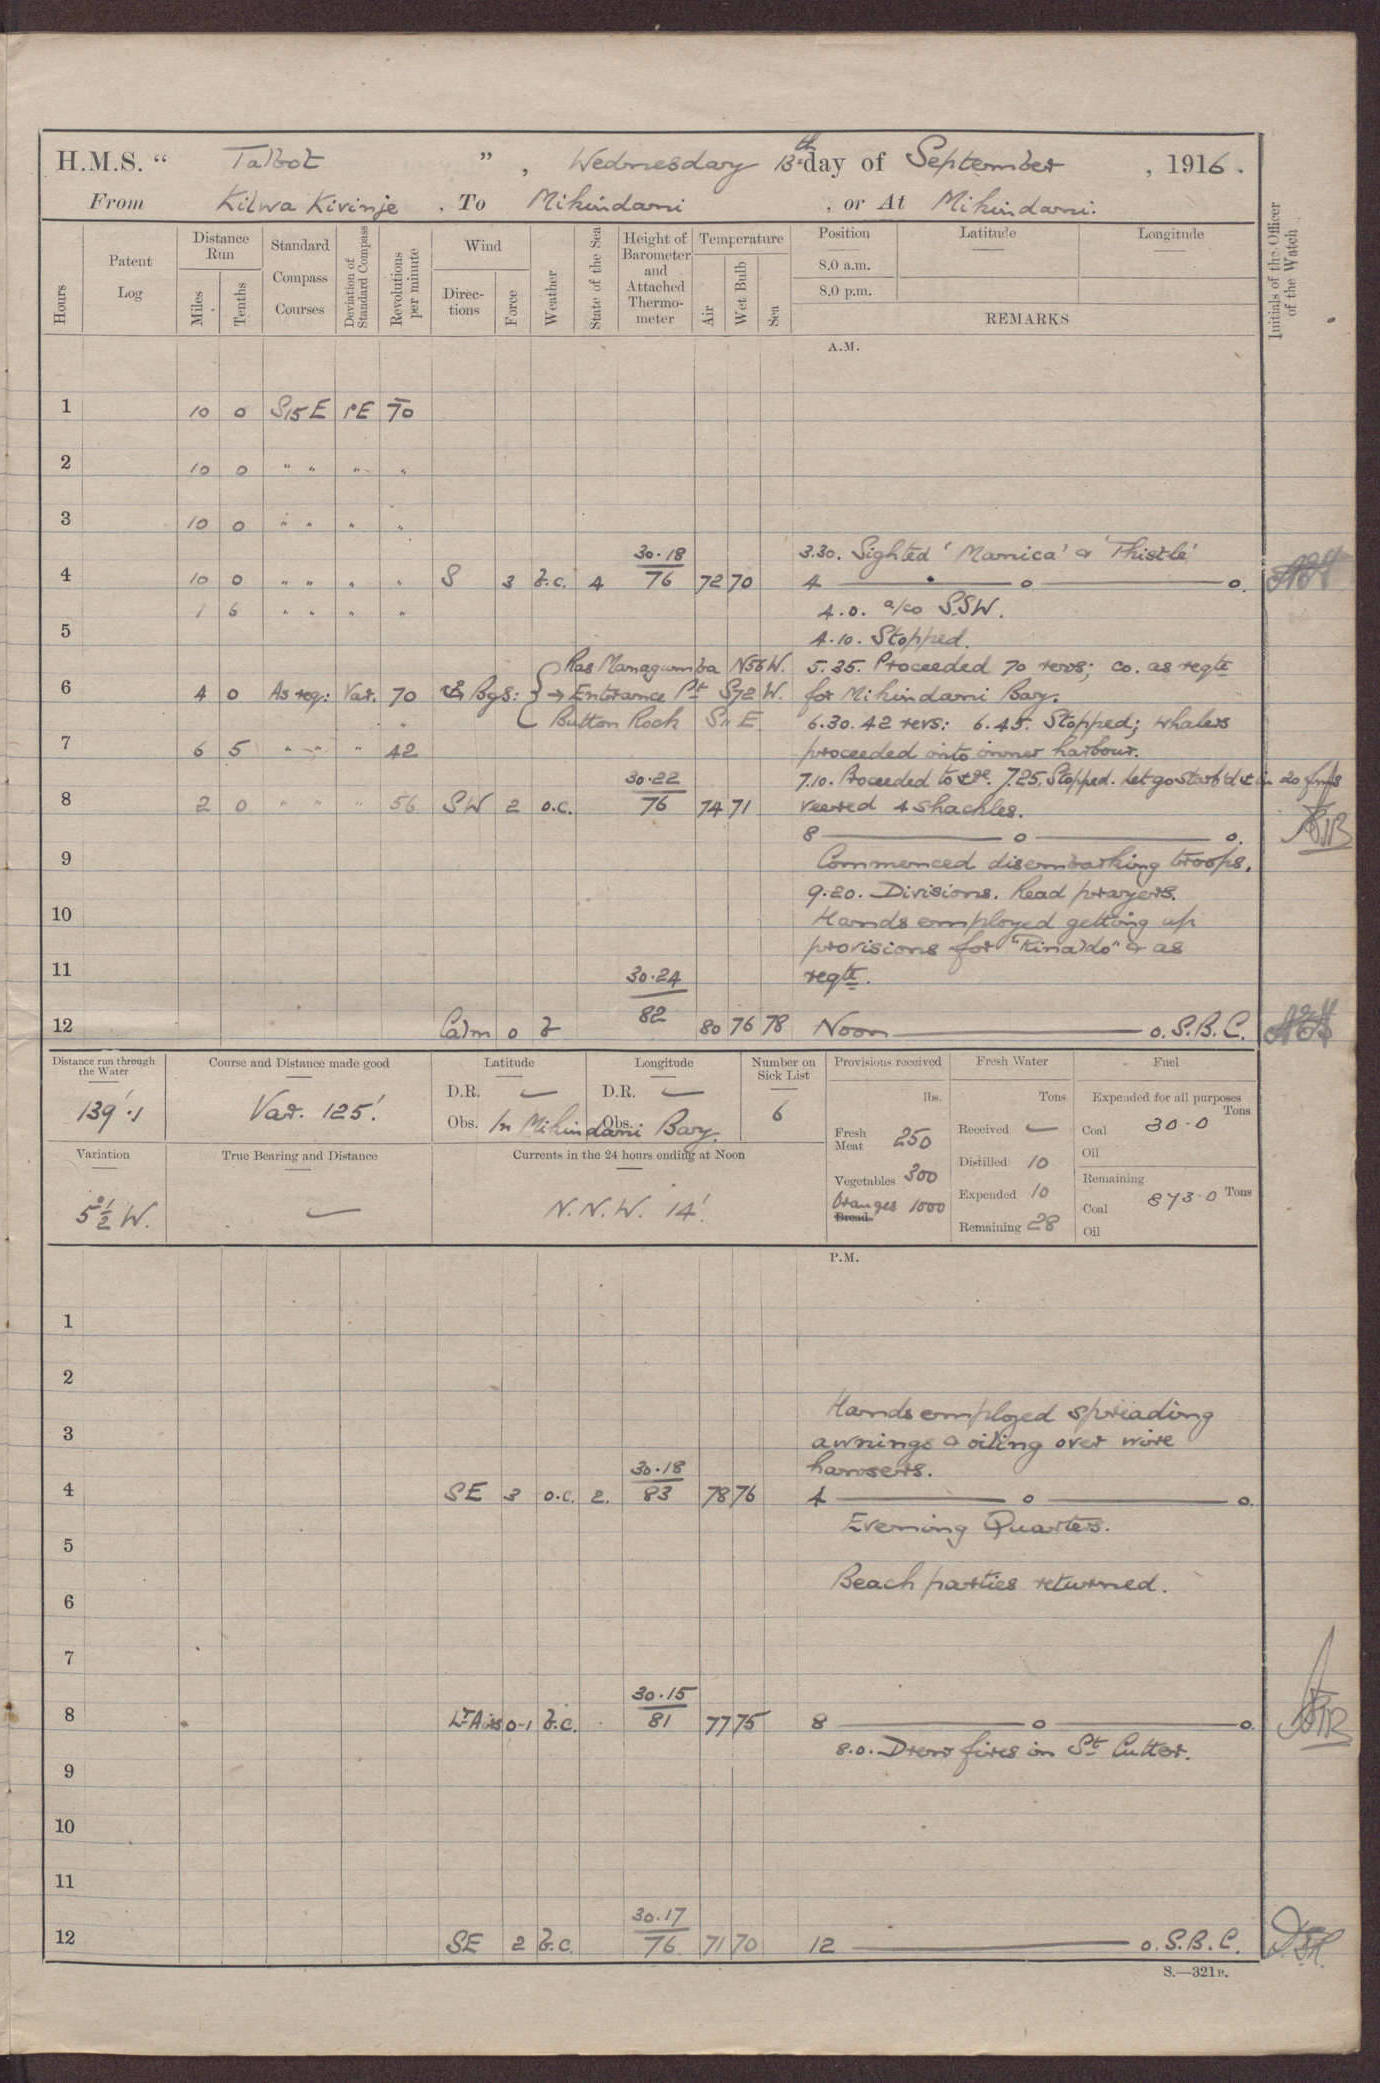 H.M.S. " Talbot " , Wednesday 13th day of September , 1916 .
From Kilwa Kivinje . To Mikindani , or At Mikindani.
Hours
Patent Log
Distance Run
Miles
Tenths
Standard Compass Courses
Deviation of Standard Compass
Revolutions per minute
Wind
Directions
Force
Weather
State of the Sea
Height of Barometer and Attached Thermometer
Temperature
Air
Wet Bulb
Sea
Position
8.0 a.m.
8.0 p.m.
Latitude
Longitude
REMARKS
Initials of the Officer of the Watch
A.M.
1 10 0 S15E 1°E 70
2 10 0 " " " "
3 10 0 " " " "
30.18 3.30. Sighted 'Manica' & 'Thistle'
4 10 0 " " " " S 3 b.c. 4 76 72 70 4 o o.
1 6 " " " " 4.0. a/co S.SW.
5 4.10. Stopped.
Ras Managumba N56W. 5.35. Proceeded 70 revs; co. as reqte
6 4 0 As req: Var. 70 Bgs: Entrance Pt S72W. for Mikindani Bay.
Button Rock S11E 6.30. 42 revs: 6.45. Stopped; whalers
7 6 5 " " " 42 proceeded into inner harbour.
30.22 7.10. Proceeded to . 7.25. Stopped. Let go starb'd in 20 fms
8 2 0 " " " 56 SW 2 o.c. 76 74 71 veered 4 shackles.
8 o o.
9 Commenced disembarking troops.
9.20. Divisions. Read prayers.
10 Hands employed getting up
provisions for "Rinaldo" & as
11 30.24 reqte.
12 Calm 0 b 82 80 76 78 Noon o. S.B.C.
Distance run through the Water
139'.1
Course and Distance made good
Var. 125'.
Latitude
D.R. —
Longitude
D.R. —
Obs. Obs. In Mikindani Bay.
Number on Sick List
6
Variation
5½° W.
True Bearing and Distance
—
Currents in the 24 hours ending at Noon
N.N.W. 14'.
Provisions received
lbs.
Fresh Meat 250
Vegetables 300
Oranges 1000
Bread
Fresh Water
Tons
Received —
Distilled 10
Expended 10
Remaining 28
Fuel
Expended for all purposes
Tons
Coal 30.0
Oil
Remaining
Coal 873.0 Tons
Oil
P.M.
1
2
Hands employed spreading
3 awnings & oiling over wire
30.18 hawsers.
4 SE 3 o.c. 2. 83 78 76 4 o o.
Evening Quarters.
5
Beach parties returned.
6
7
30.15
8 Lt Airs 0-1 b.c. 81 77 75 8 o o.
8.0. Drew fires in St Cutter.
9
10
11
30.17
12 SE 2 b.c. 76 71 70 12 o. S.B.C.
S.—321B.